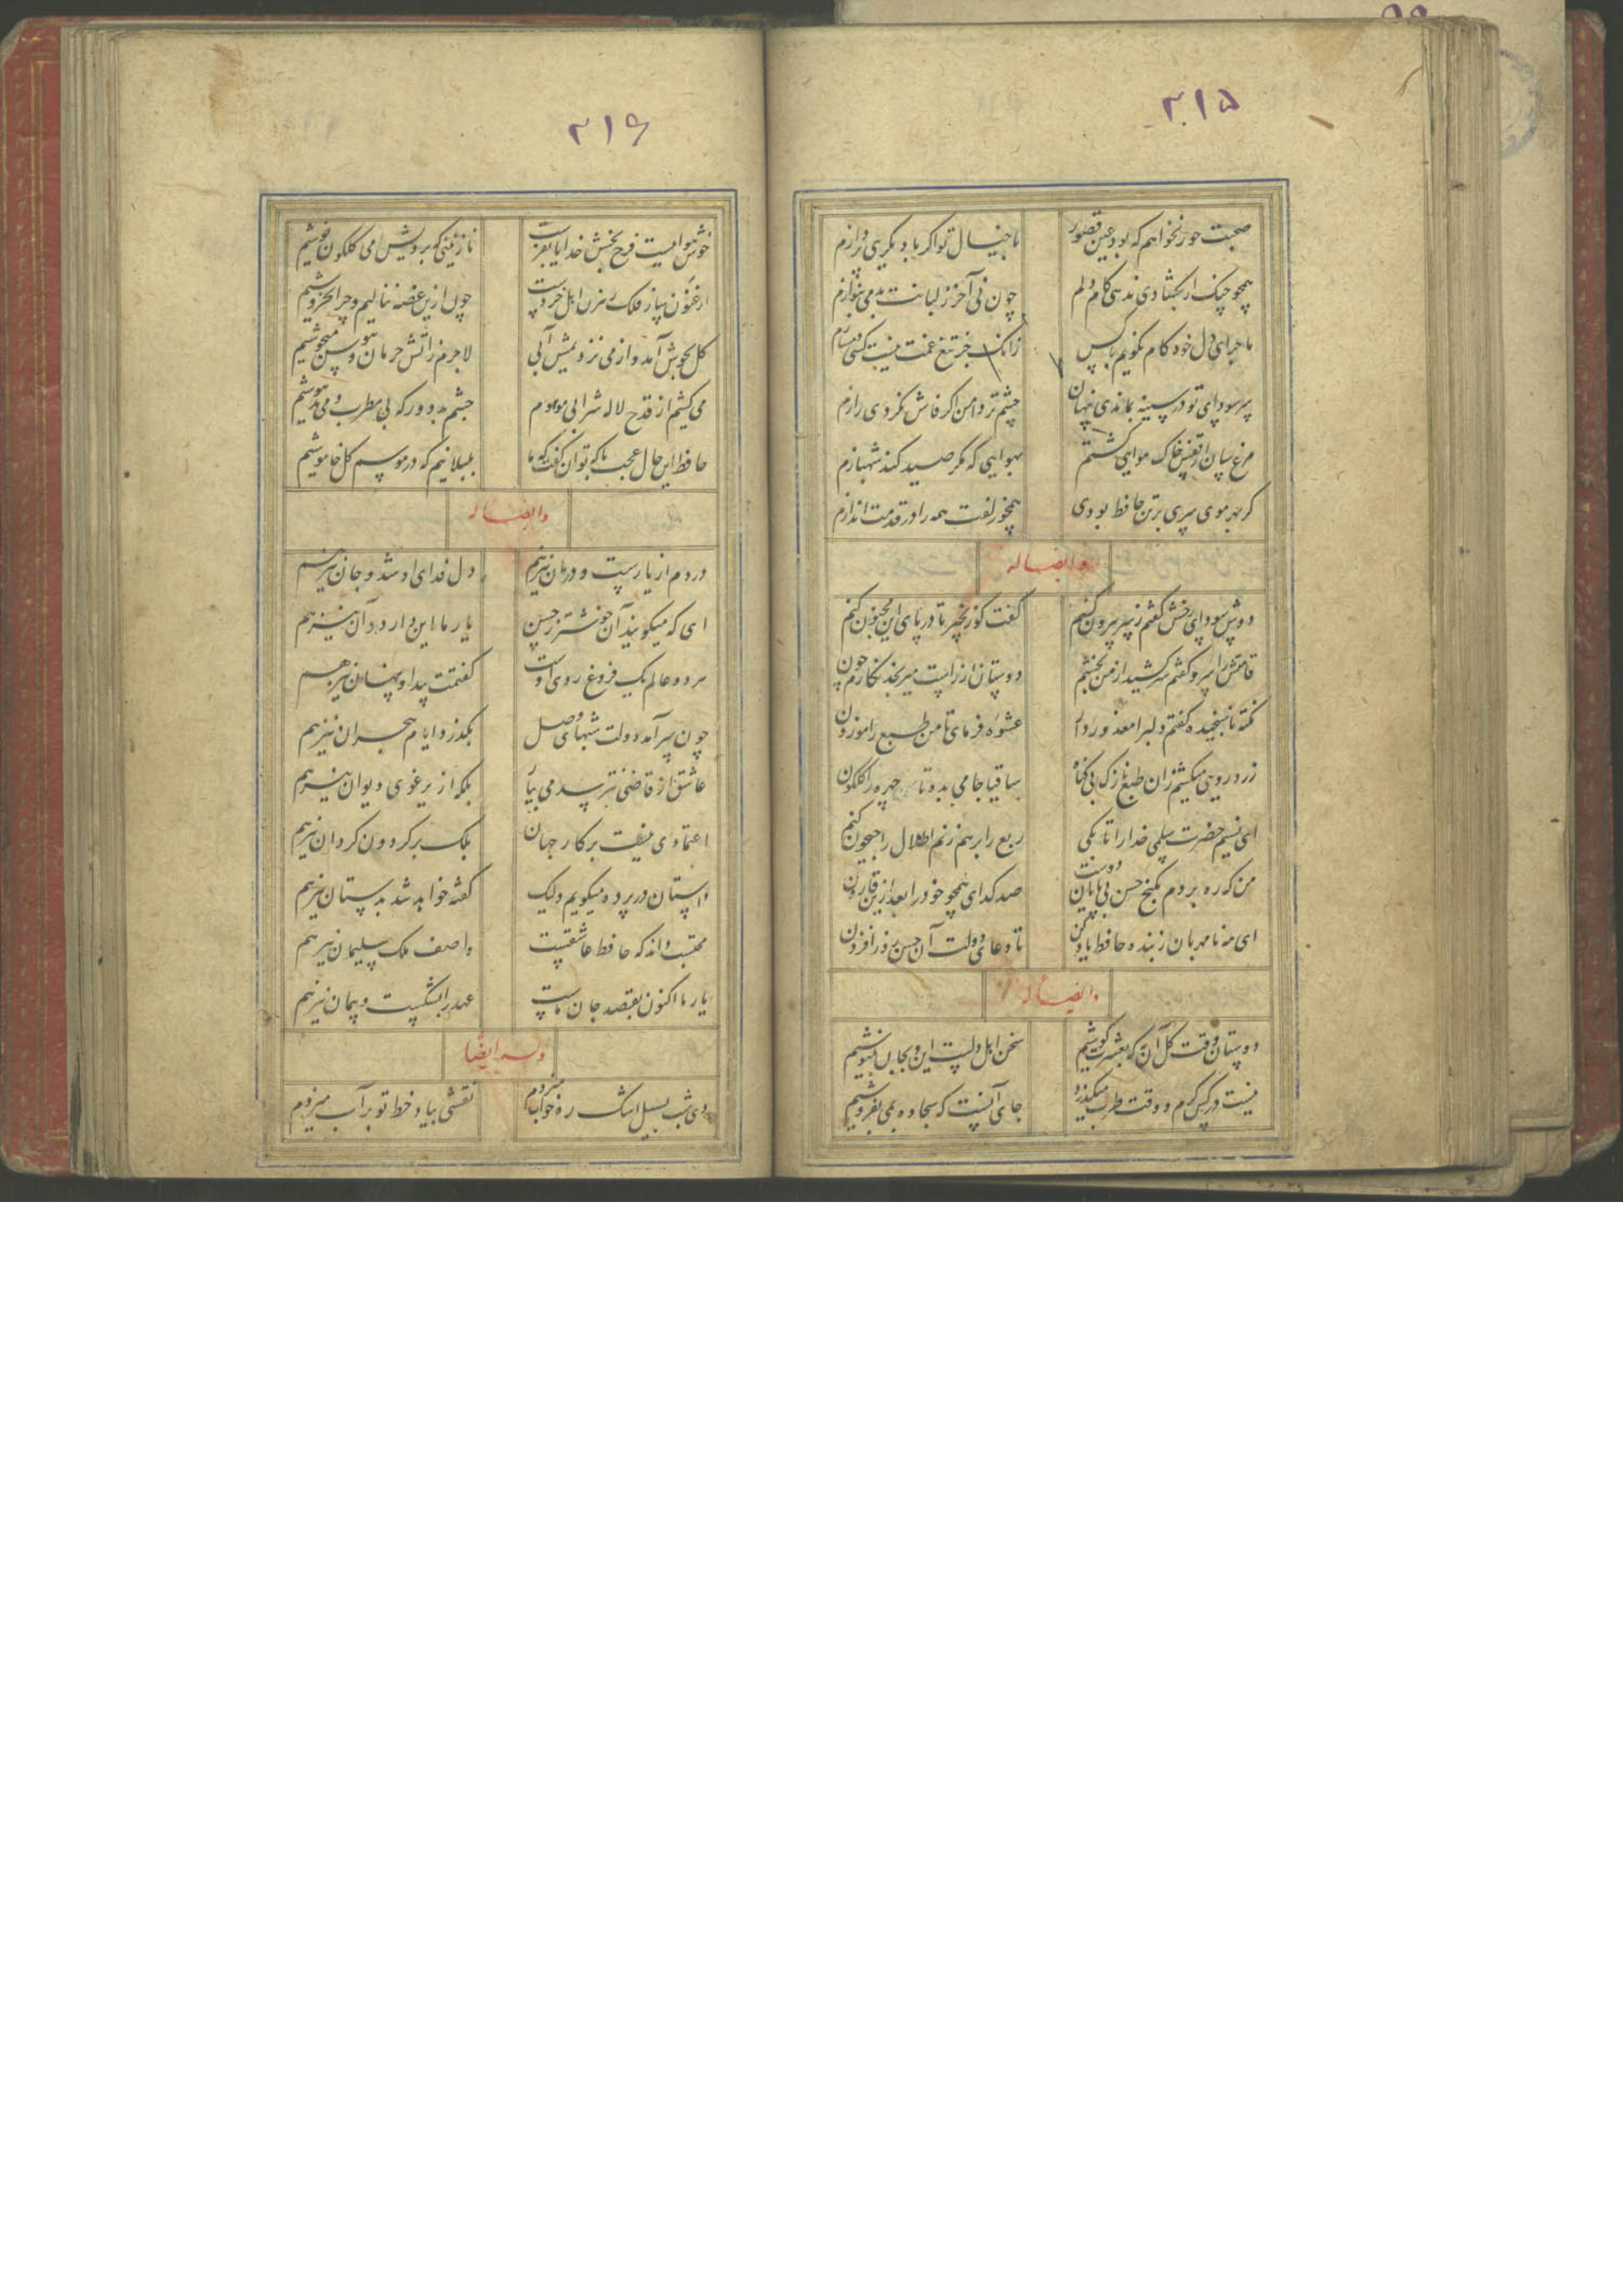 ۲۱۵
صحبت حور نخواهم که بود عین قصور
با خیال تو اگر با دیگری پردازم
همچو چنگ ار بگشادی ندهی کام دلم
چون نی آخر ز لبانت بدمی بنوازم
ماجرای دل خود کام نگویم با کس
زانکه جز تیغ غمت نیست کسی دمسازم
سر سودای تو در سینه بماندی پنهان
چشم تر دامن اگر فاش نکردی رازم
مرغ سان از قفس خاک هوایی گشتم
بهوایی که مگر صید کند شهبازم
گر بهر موی سری بر تن حافظ بودی
همچو زلفت همه را در قدمت اندازم
وایضا له
دوش سودای رخش گفتم ز سر بیرون کنم
گفت کو زنجیر تا درپای این مجنون کنم
قامتش را سرو گفتم سر کشید از من بخشم
دوستان از راست میرنجد نگارم چون
نکته ناسنجیده گفتم دلبرا معذور دار
عشوه فرمای تا من طبع را موزون
زرد رویی میکشم زان طبع نازک بی گناه
ساقیا جامی بده تا چهره را گلگون
ای نسیم حضرت سلمی خدا را تا بکی
ربع را برهم زنم اطلال را جیحون کنم
من که ره بردم بگنج حسن بی پایان دوست
صد گدای همچو خود را بعد ازین قارون
ای مه نامهربان از بنده حافظ یاد کن
تا دعای دولت آن حسن روز افزون
وایضا له
دوستان وقت گل آن به که بعشرت کوشیم
سخن اهل دلست این و بجان بنیوشیم
نیست در کس کرم و وقت طرب میگذرد
جای آنست که سجاده بمی بفروشیم
۲۱۶
خوش هواییست فرح بخش خدایا بفرست
نازنینی که برویش می گلگون نوشیم
ارغنون ساز فلک رهزن اهل خردست
چون ازین غصه ننالیم و چرا نخروشیم
گل بجوش آمد و از می نزدیمش آبی
لاجرم ز آتش حرمان و هوس میجوشیم
می کشیم از قدح لاله شرابی موهوم
چشم بد دور که بی مطرب و می مدهوشیم
حافظ این حال عجب با که توان گفت که ما
بلبلانیم که در موسم گل خاموشیم
وایضا له
دردم از یارست و درمان نیز هم
دل فدای او شد و جان نیز هم
ای که میگویند آن خوشتر ز حسن
یار ما این دارد و آن نیز هم
هر دو عالم یک فروغ روی اوست
گفتمت پیدا و پنهان نیز هم
چون سر آمد دولت شبهای وصل
بگذرد ایام هجران نیز هم
عاشق از قاضی نترسد می بیار
بلکه از یرغوی دیوان نیز هم
اعتمادی نیست بر کار جهان
بلک بر گردون گردان نیز هم
داستان در پرده میگویم ولیک
گفته خواهد شد بدستان نیز هم
محتسب داند که حافظ عاشقست
واصف ملک سلیمان نیز هم
یار ما اکنون بقصد جان ماست
عهد را بشکست و پیمان نیز هم
وله ایضا
دی شب بسیل اشک ره خواب میزدم
نقشی بیاد خط تو بر آب میزدم